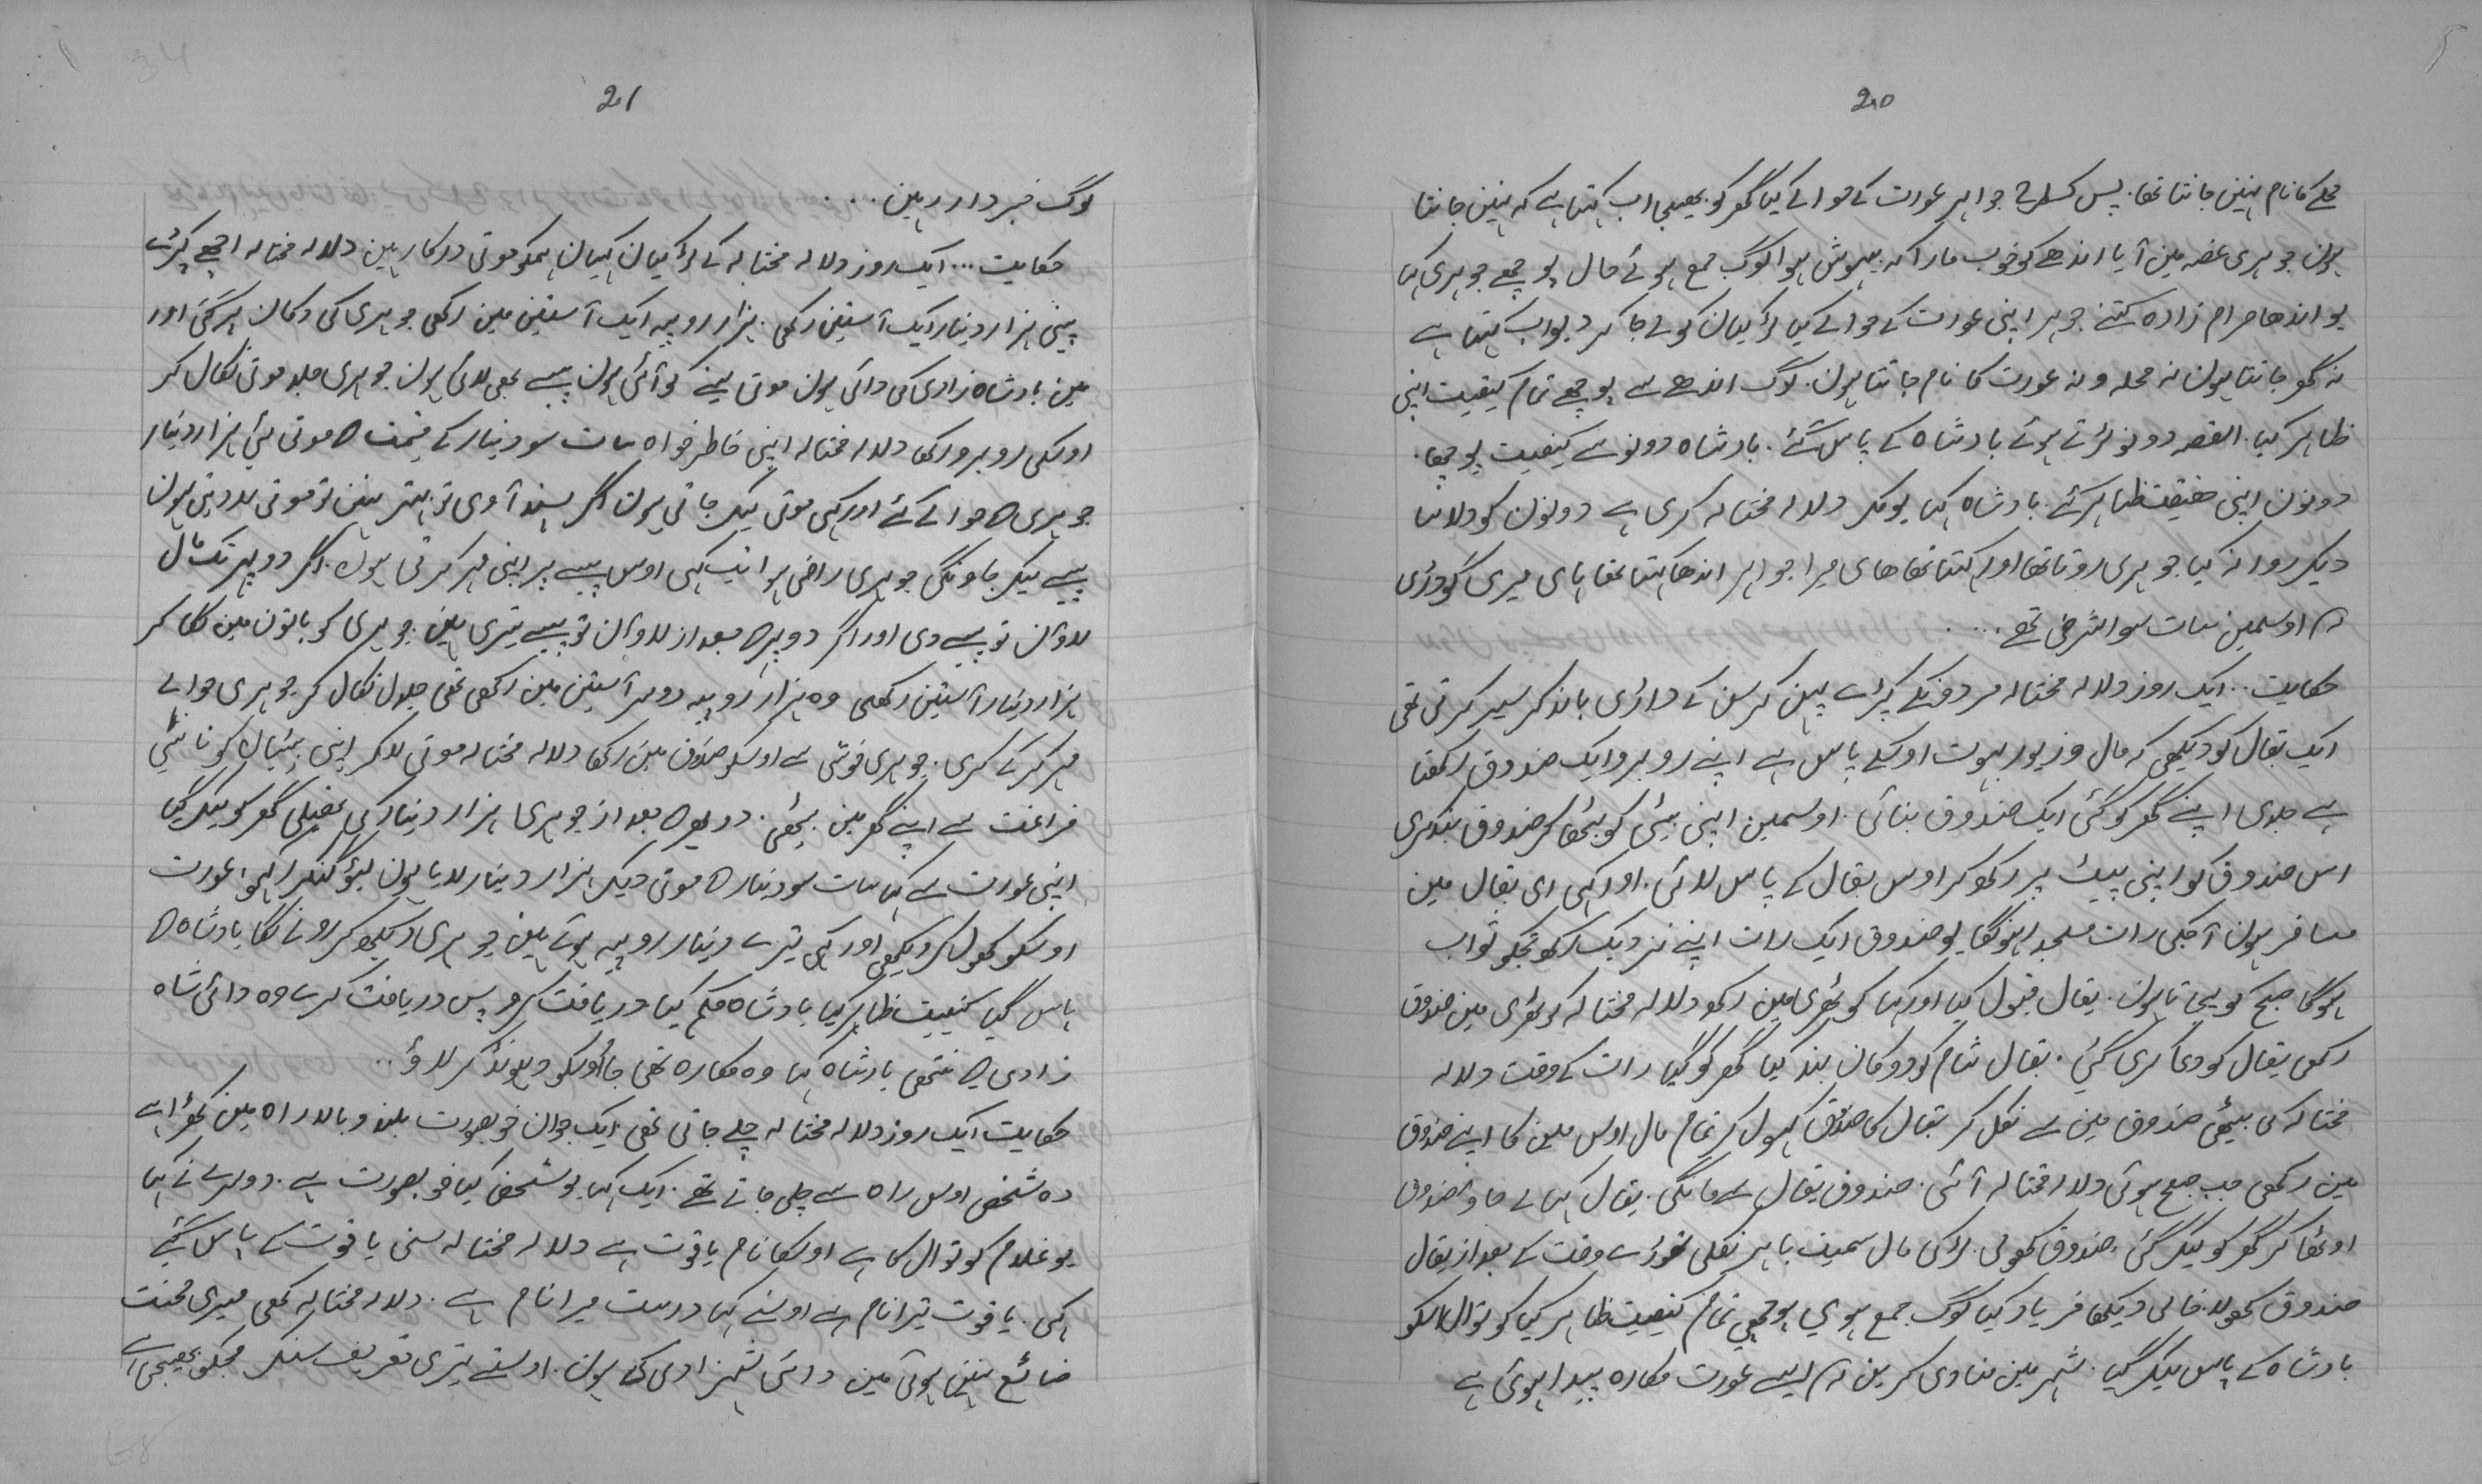 20
محلے کا نام نہین جانتا تھا. پس کسطرح جواہر عورت کے حوالے کیا گھر کو بھیجا اب کہتا ہے کہ نہین جانتا
ہون جوہری غصہ مین آیا اندھے کو خوب مارا کہ بیہوش ہوا لوگ جمع ہوئے حال پوچھے جوہری کہا
یو اندھا حرام زادہ کتنے جوہر اپنی عورت کے حوالے کیا لڑکیان کو لے جا کر دیو اب کہتا ہے
نہ گھر جانتا ہون نہ محلہ و نہ عورت کا نام جانتا ہون. لوگ اندھے سے پوچھے تمام کیفیت اپنی
ظاہر کیا. القصہ دونو لڑتے ہوئے بادشاہ کے پاس گئے. بادشاہ دونو سے کیفیت پوچھا.
دونون اپنی حقیقت ظاہر کئے. بادشاہ کہا یو مکر دلالہ مختالہ کری ہے دونون کو دلاسا
دیکر روانہ کیا جوہری روتا تھا اور کہتا تھا ھای میرا جواہر اندھا کہتا تھا ہای میری گودڑی
کہ اوسمین سات سو اشرفی تھے....
حکایت.. ایک روز دلالہ مختالہ مردونکے کپڑے پہن کر سن کے داڑی باندکر سیر کرتی تھی
ایک بقال کو دیکھی کہ مال و زیور بہوت اوسکے پاس ہے اپنے روبرو ایک صندوق رکھتا
ہے جلدی اپنے گھر کو گئی ایک صندوق بنائی. اوسمین اپنی بیٹی کو بٹھا کر صندوق بند کری
اس صندوق کو اپنی پیٹ پر رکھو کر اوس بقال کے پاس لائی. اور کہی ای بقال مین
مسافر ہون آجکی رات مسجد رہونگا یو صندوق ایک رات اپنے نزدیک رکھو تجکو ثواب
ہوگا صبح کو لیجاتا ہون. بقال قبول کیا اور کہا کوٹھری مین رکھو دلالہ مختالہ کوٹھری مین صندوق
رکھی بقال کو دعا کری گئی. بقال شام کو دوکان بند کیا گھر کو گیا رات کے وقت دلالہ
مختالہ کی بیٹھی صندوق مین سے نکل کر بقال کا صندوق کہول کر تمام مال اوس مین کا اپنے صندوق
مین رکھی جب صبح ہوئی دلالہ مختالہ آئی. صندوق بقال سے مانگی. بقال کہا لے جاؤ صندوق
اوٹھا کر گھر کو لیکر گئی. صندوق کھولی. لڑکی مال سمیت باہر نکلی تھوڑے وقت کے بعد از بقال
صندوق کھولا خالی دیکھا فریاد کیا لوگ جمع ہوی پوچھی تمام کیفیت ظاہر کیا کوتوال اسکو
بادشاہ کے پاس لیکر گیا. شہر مین منادی کرین کہ ایسے عورت مکارہ پیدا ہوئی ہے
21
لوگ خبردار رہین...
حکایت... ایک روز دلالہ مختالہ کے لڑکیان کہیان ہمکو موتی درکار ہین دلالہ مختالہ اچھے کپڑے
پہنی ہزار دینار ایک آستین رکھی. ہزار روپیہ ایک آستین مین رکھی جوہری کی دکان پر گئی اور
مین بادشاہ زادی کی دائی ہون موتی لینے کو آئی ہون پیسے بھی لائی ہون جوہری جلد موتی نکال کر
اوسکی روبرو رکھا دلالہ مختالہ اپنی خاطر خواہ سات سو دینار کے قیمت کا موتی لئی ہزار دینار
جوہری کا حوالے کئے اور کہی موتی لیکر جاتی ہون اگر پسند آوی تو بہتر نہین تو موتی لادیتی ہون
پیسے لیکر جاونگی جوہری راضی ہوا تب کہی اوس پیسے پر اپنی مہر کرتی ہون. اگر دوپہر تک مال
لاوٗن تو پیسے دی اور اگر دوپہر کا بعد از لاوٗن تو پیسے تیری ہین. جوہری کو باتون مین لگا کر
ہزار دینار آستین رکھلی وہ ہزار روپیہ دوسر آستین مین رکھی تھی جلدی نکال کر جوہری حوالے
مہر کرکے کری. جوہری خوشی سے اوسکو صندوق مین رکھا دلالہ مختالہ موتی لاکر اپنی بیٹیان کو بانٹی
فراغت سے اپنے گھر مین بیٹھی. دوپہر کا بعد از جوہری ہزار دینار کی تھیلی گھر کو لیکر گیا
اپنی عورت سے کہا سات سو دینار کا موتی دیکر ہزار دینار لایا ہون عورت
اوسکو کھول کر دیکھی اور کہی تیرے دینار روپیہ ہوتے ہین جوہری دیکھ کر رونے لگا بادشاہ کا
پاس گیا کیفیت ظاہر کیا بادشاہ حکم کیا دریافت کرو پس دریافت کرے وہ دائی شاہ
زادی کا نتھی بادشاہ کہا وہ مکارہ تھی جاؤ اوسکو ڈھونڈ کر لاؤ..
حکایت ایک روز دلالہ مختالہ چلے جاتی تھی ایک جوان خوبصورت بلند و بالا راہ مین کھڑا ہے
دہ شخص اوس راہ سے چلی جاتے تھے. ایک کہا یو شخص کیا خوبصورت ہے. دوسرے نے کہا
یو غلام کوتوال کا ہے اوسکا نام یاقوت ہے دلالہ مختالہ سنی یاقوت کے پاس گئے
کہی. یاقوت تیرا نام ہے اوسنے کہا درست میرا نام ہے. دلالہ مختالہ کھی میری محنت
ضائع نہین ہوئی مین دائی شہزادی کی ہون. اوسنے تیری تعریف سنکر مجکو بھیجی ہے